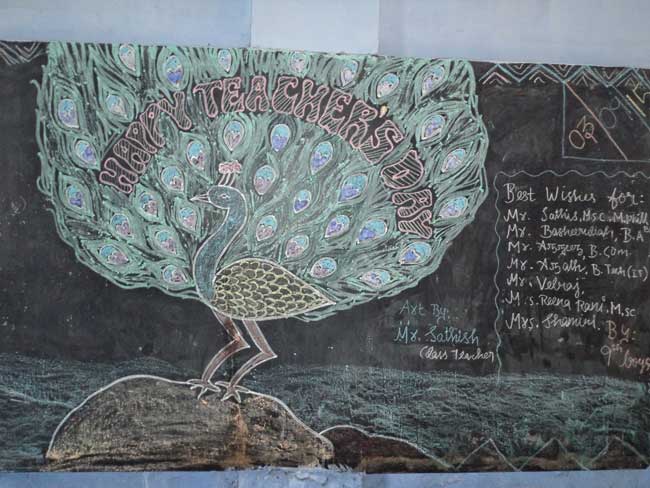 HAPPY TEACHER'S DAY
Best Wishes for:
Mr. Sathis, M.sc., M.phill
Mr. Basheerullah, B.A
Mr. B.Com
Mr. B.Tech (IT)
Mr. Velraj
M.s. Reena Rani, M.sc
Mrs. Shamini.
By:
9th boys
Art By:
Mr. Sathish
Class Teacher